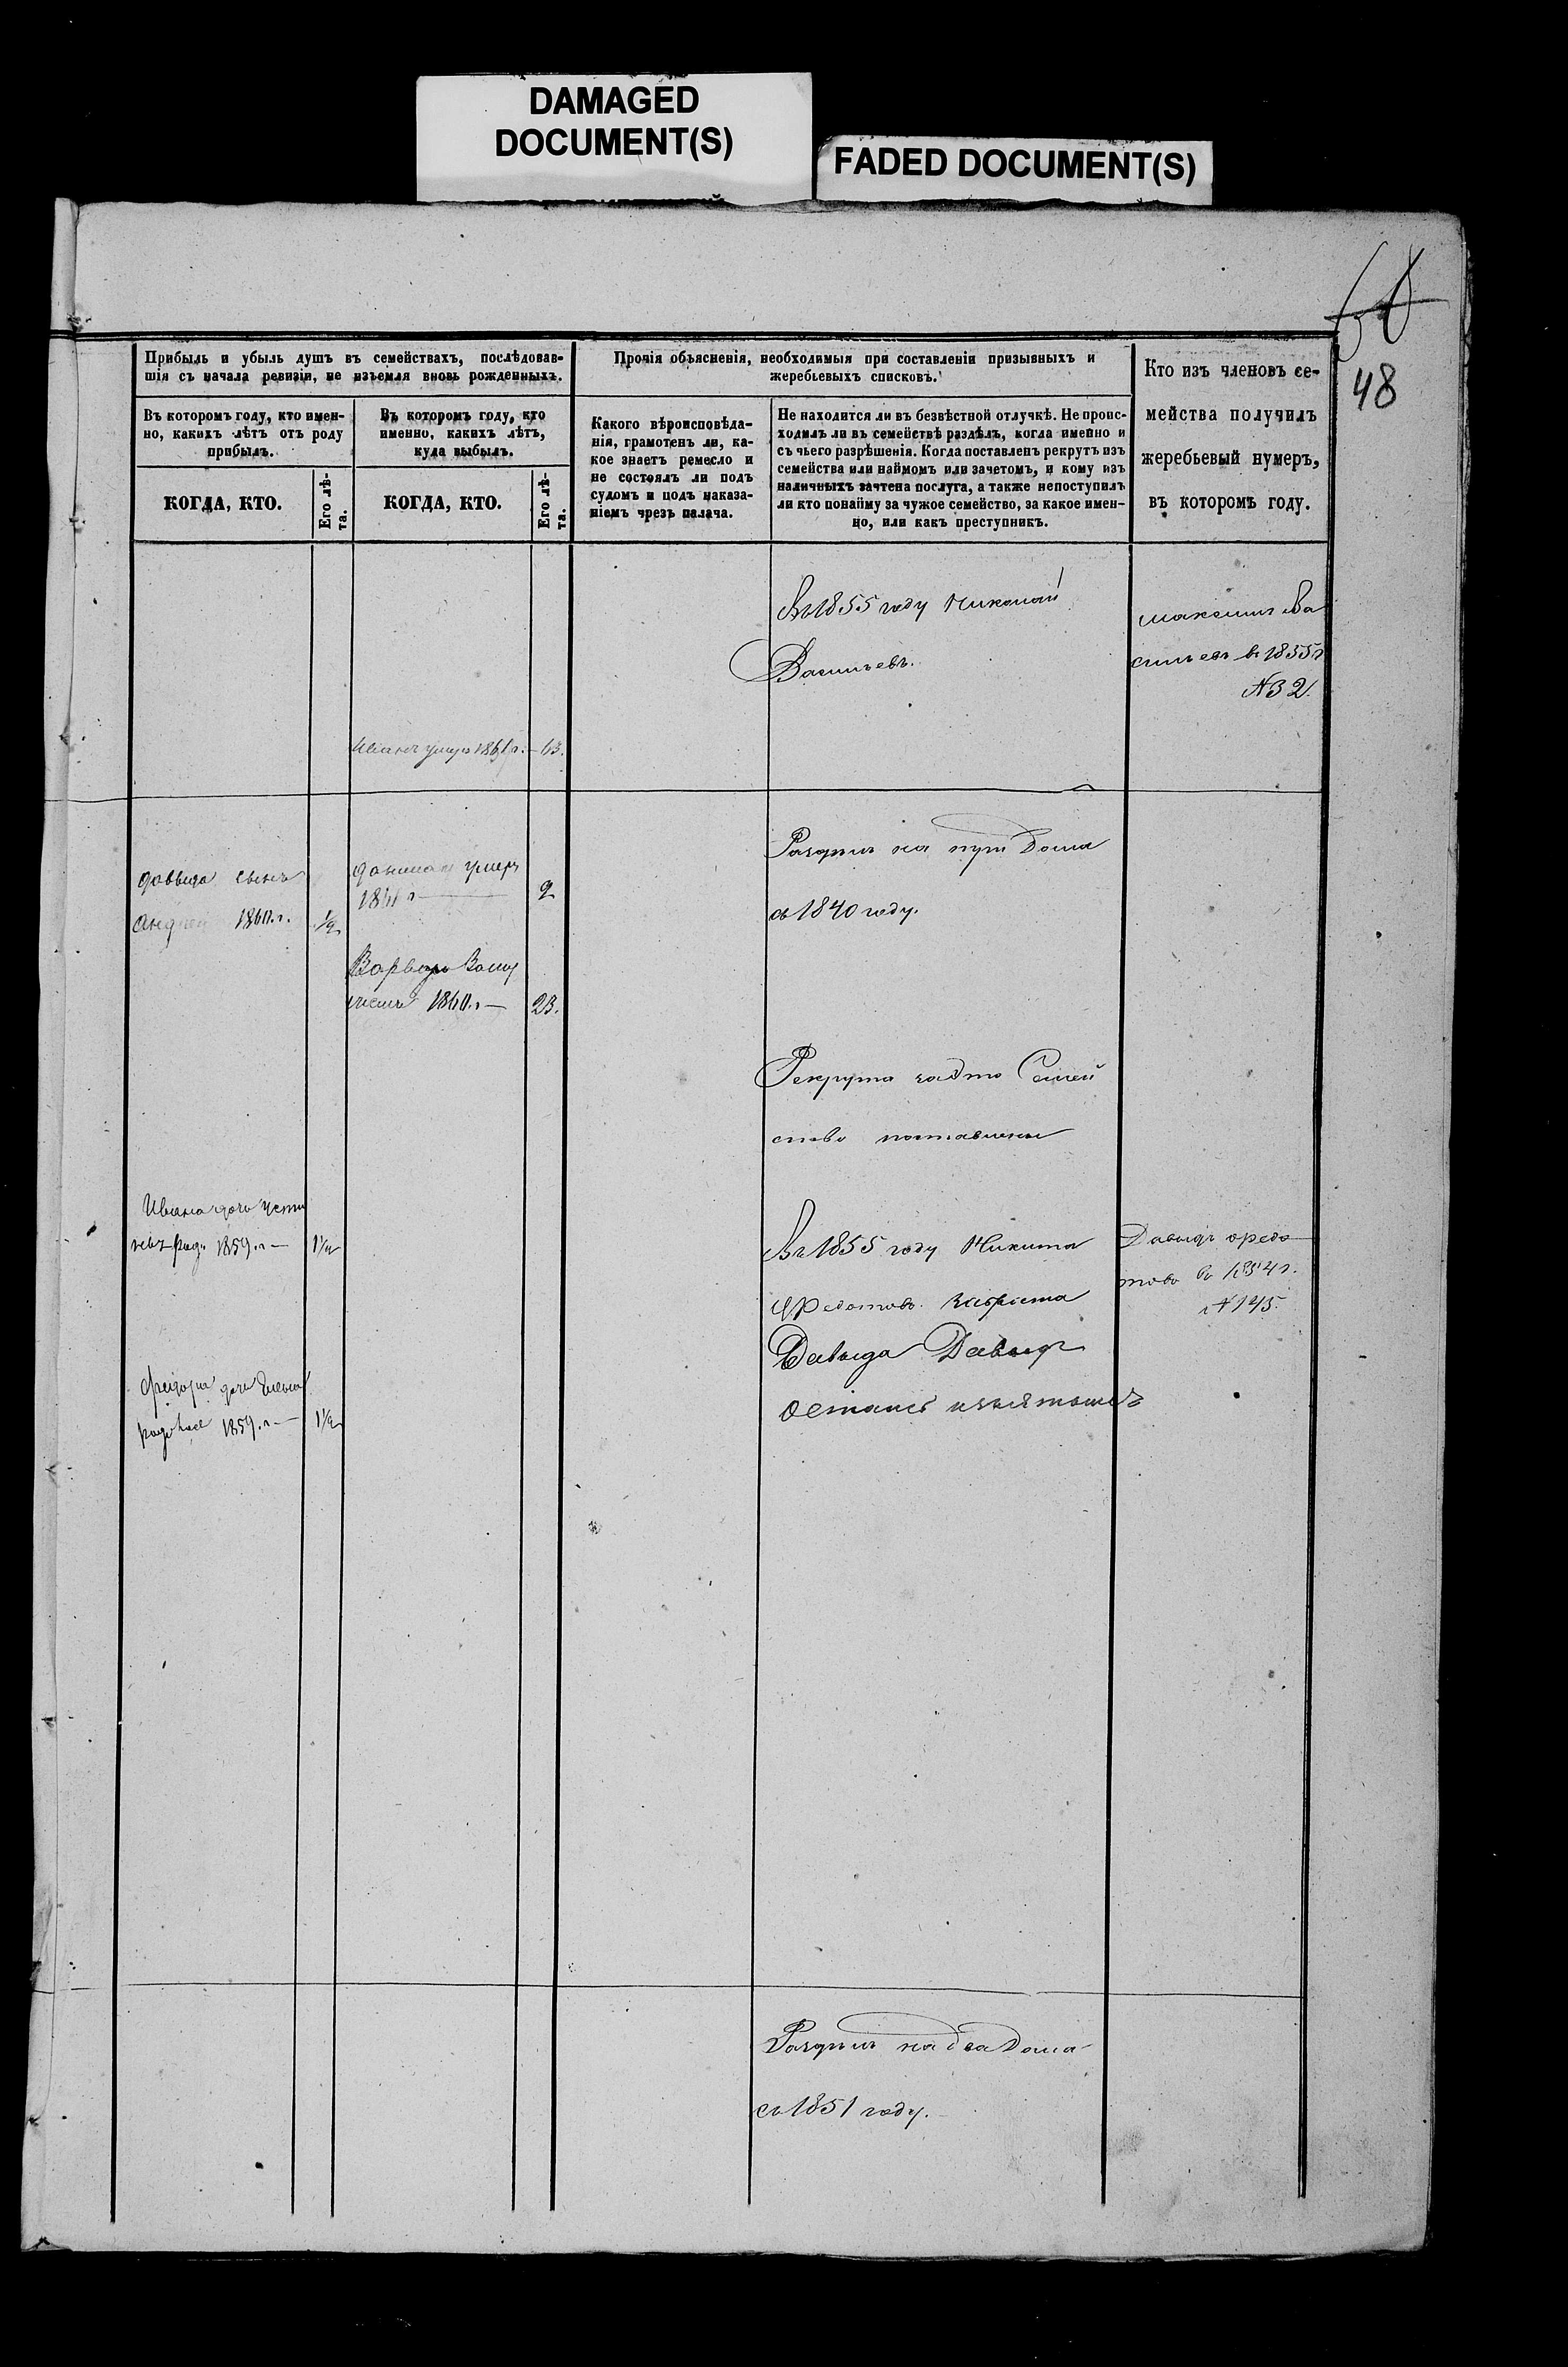 DAMAGED
DOCUMENT(S)
FADED DOCUMENT(S)
48
Прибыль и убыль душъ въ семействахъ, послѣдовав-
шія съ начала ревизіи, не изъемля вновь рожденныхъ.
Прочія объясненія, необходимыя при составленіи призывныхъ и
жеребьевыхъ списковъ.
Кто изъ членовъ се-
мейства получилъ
жеребьевый нумеръ,
въ которомъ году.
Въ которомъ году, кто имен-
но, какихъ лѣтъ отъ роду
прибылъ.
Въ которомъ году, кто
именно, какихъ лѣтъ,
куда выбылъ.
Какого вѣроисповѣда-
нія, грамотенъ ли, ка-
кое знаетъ ремесло и
не состоялъ ли подъ
судомъ и подъ наказа-
ніемъ чрезъ палача.
Не находится ли въ безвѣстной отлучкѣ. Не проис-
ходилъ ли въ семействѣ раздѣлъ, когда именно и
съ чьего разрѣшенія. Когда поставленъ рекрутъ изъ
семейства или наймомъ или зачетомъ, и кому изъ
наличныхъ зачтена послуга, а также непоступилъ
ли кто понайму за чужое семейство, за какое имен-
но, или какъ преступникъ.
КОГДА, КТО.
Его лѣ-
та.
КОГДА, КТО.
Его лѣ-
та.
Въ 1855 году Николай
Васильевъ.
Максимъ Ва
сильевъ въ 1855 г
№ 32.
Иванъ умеръ 1861 г. — 63.
Раздѣлъ на три Дома
съ 1840 году.
Давыда сынъ
Андрей 1860. г. 1/2
умеръ
1861 г — 2
Варвара Замуж
1860. г — 23.
Рекрута за это Семей
ство
Ивана дочь Усти
1859. г — 1 1/2
Въ 1855 году Никита
Федотовъ.
Давыда Давыд
Давыдъ Федо
товъ въ 1854 г.
№ 145.
дочь
1859. г — 1 1/2
Раздѣлъ на два Дома
съ 1851 году.